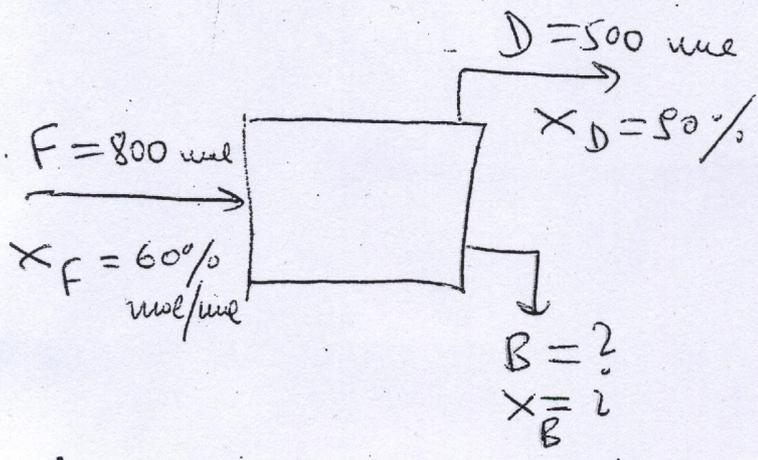 D = 500 mol
X D = 90%
F = 800 mol
X F = 60%
mol/mol
B = ?
X B = ?